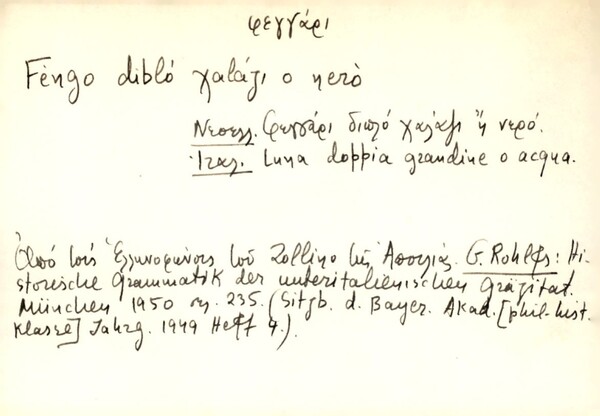 φεγγάρι
Fèngo dibló χalázi o nerò
Νεοελλ. Φεγγάρι διπλό χαλάζι ἤ νερό.
Ἰταλ. Luna doppia grandine o acqua.
Ἀπό τούς Ἑλληνοφώνους τοῦ Zollino τῆς Ἀπουλίας. G. Rohlfs: Hi-
storische Grammatik der unteritalienischen Gräzität.
München 1950 σ. 235. (Sitzb. d. Bayer. Akad. [phil-hist.
Klasse] Jahrg. 1949 Heft 4.).